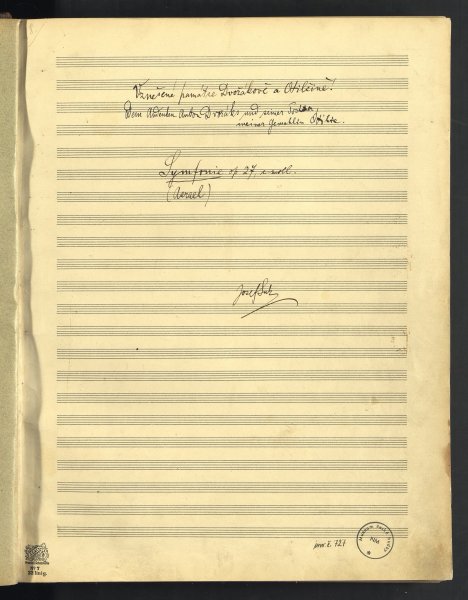 Vznešené památce Dvořákově a Otilčině!
Dem Andenken Anton Dvořáks und seiner Tochter,
meiner Gemahlin Otilie.
Symfonie op 27, c moll.
(Asrael)
Josef Suk
inv. č. 727
No 7
32 linig.